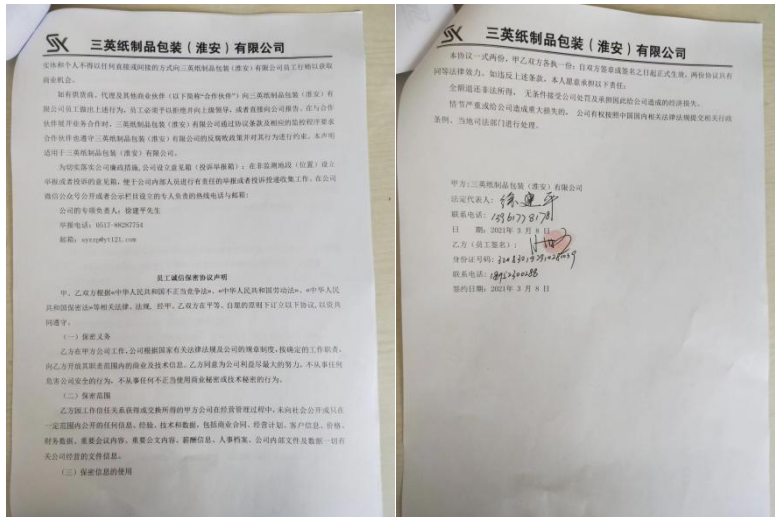 SK 三英纸制品包装（淮安）有限公司
实体和个人不得以任何直接或间接的方式向三英纸制品包装（淮安）有限公司员工行贿以获取
商业机会。
如有供货商、代理及其他商业伙伴（以下简称“合作伙伴”）向三英纸制品包装（淮安）有
限公司员工做出上述行为，员工必须予以拒绝并向上级领导，或者直接向公司报告。在与合作
伙伴展开业务合作时，三英纸制品包装（淮安）有限公司通过协议条款及相应的监控程序要求
合作伙伴也遵守三英纸制品包装（淮安）有限公司的反腐败政策并对其行为进行约束。本声明
适用于三英纸制品包装（淮安）有限公司。
为切实落实公司廉政措施，公司设立意见箱（投诉举报箱）：在非监测地段（位置）设立
举报或者投诉的意见箱，便于公司内部人员进行有责任的举报或者投诉投递收集工作。在公司
微信公众号公开或者公示栏目设立的专人负责的热线电话与邮箱：
公司的专项负责人：徐建平先生
举报电话：0517-88287754
邮箱：syzzp@yt121.com
员工诚信保密协议声明
甲、乙双方根据«中华人民共和国不正当竞争法»、«中华人民共和国劳动法»、«中华人民
共和国保密法»等相关法律、法规，经甲、乙双方在平等、自愿的原则下订立以下协议，以资共
同遵守。
（一）保密义务
乙方在甲方公司工作，公司根据国家有关法律法规及公司的规章制度，按确定的工作职责，
向乙方开放其职责范围内的商业及技术信息。乙方同意为公司利益尽最大的努力，不从事任何
危害公司安全的行为，不从事任何不正当使用商业秘密或技术秘密的行为。
（二）保密范围
乙方因工作信任关系获得或交换所得的甲方公司在经营管理过程中，未向社会公开或只在
一定范围内公开的任何信息、经验、技术和数据，包括商业合同、经营计划、客户信息、价格、
财务数据、重要会议内容、重要公文内容、薪酬信息、人事档案、公司内部文件及数据一切有
关公司经营的文件信息。
（三）保密信息的使用
SK 三英纸制品包装（淮安）有限公司
本协议一式两份，甲乙双方各执一份；自双方签章或签名之日起正式生效，两份协议具有
同等法律效力。如违反上述条款，本人愿意承担以下责任：
全额退还非法所得，无条件接受公司处罚及承担因此给公司造成的经济损失。
情节严重或给公司造成重大损失的，公司有权按照中国国内相关法律法规提交相关行政
条例、当地司法部门进行处理。
甲方：三英纸制品包装（淮安）有限公司
法定代表人：徐建平
联系电话：
日 期：2021年 3 月 8 日
乙方（员工签名）：
身份证号码：
联系电话：
签约日期：2021年 3 月 8 日